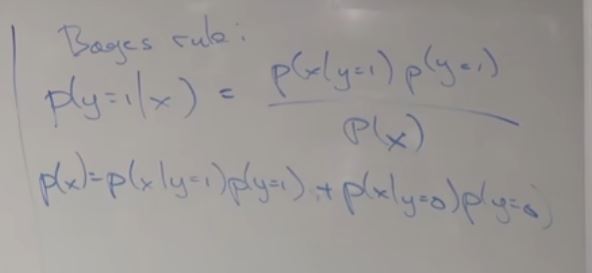 Bayes rule:
p(y=1|x) = p(x|y=1) p(y=1)
p(x)
p(x)=p(x|y=1)p(y=1) + p(x|y=0)p(y=0)